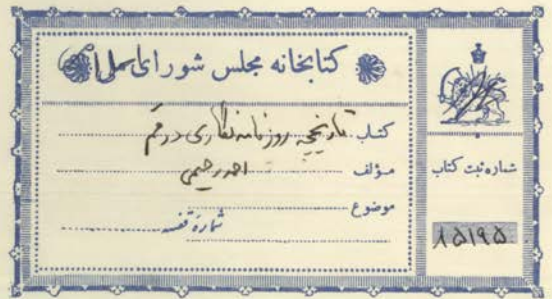 کتابخانه مجلس شورای اسلامی
کتاب تاریخچه روزنامه نگاری در قم
مؤلف احمد رحیمی
موضوع
شماره قفسه
شماره ثبت کتاب
۱۵۱۹۵